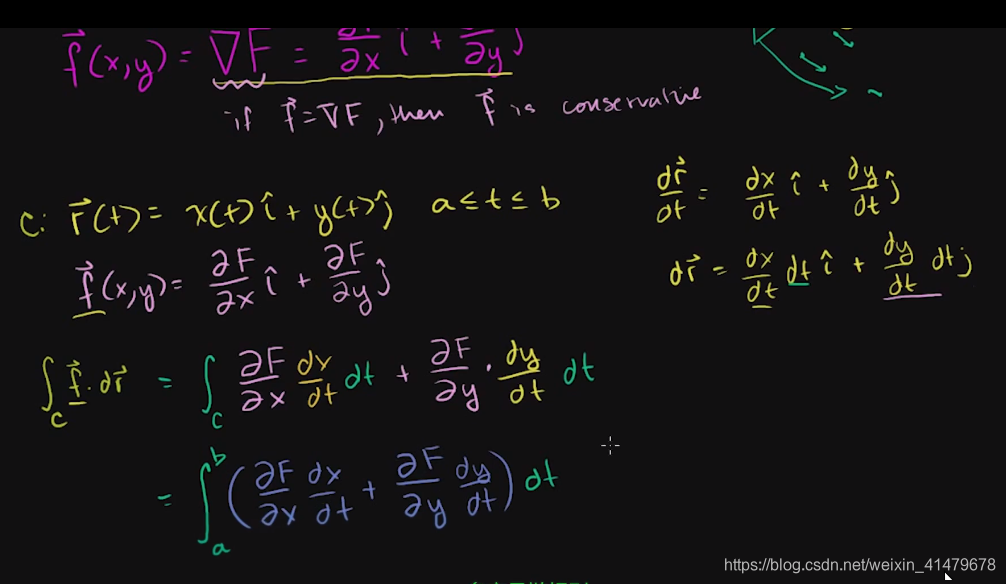 f⃗(x,y) = ∇F = ∂F/∂x î + ∂F/∂y ĵ
if f⃗ = ∇F, then f⃗ is conservative
C: r⃗(t) = x(t) î + y(t) ĵ a ≤ t ≤ b
dr⃗/dt = dx/dt î + dy/dt ĵ
f⃗(x,y) = ∂F/∂x î + ∂F/∂y ĵ
dr⃗ = dx/dt dt î + dy/dt dt j
∫_C f⃗ · dr⃗ = ∫_C ∂F/∂x dx/dt dt + ∂F/∂y · dy/dt dt
= ∫_a^b (∂F/∂x dx/dt + ∂F/∂y dy/dt) dt
https://blog.csdn.net/weixin_41479678